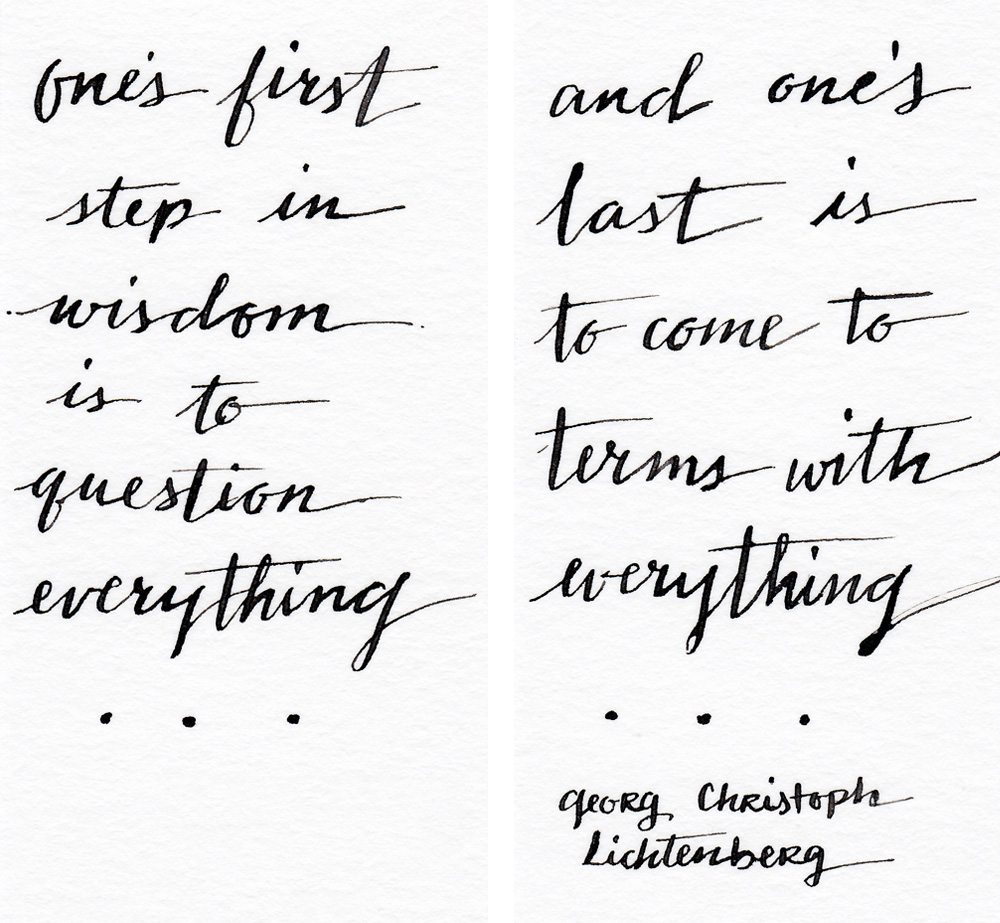 one's first
step in
wisdom
is to
question
everything
. . .
and one's
last is
to come to
terms with
everything
. . .
georg Christoph
Lichtenberg